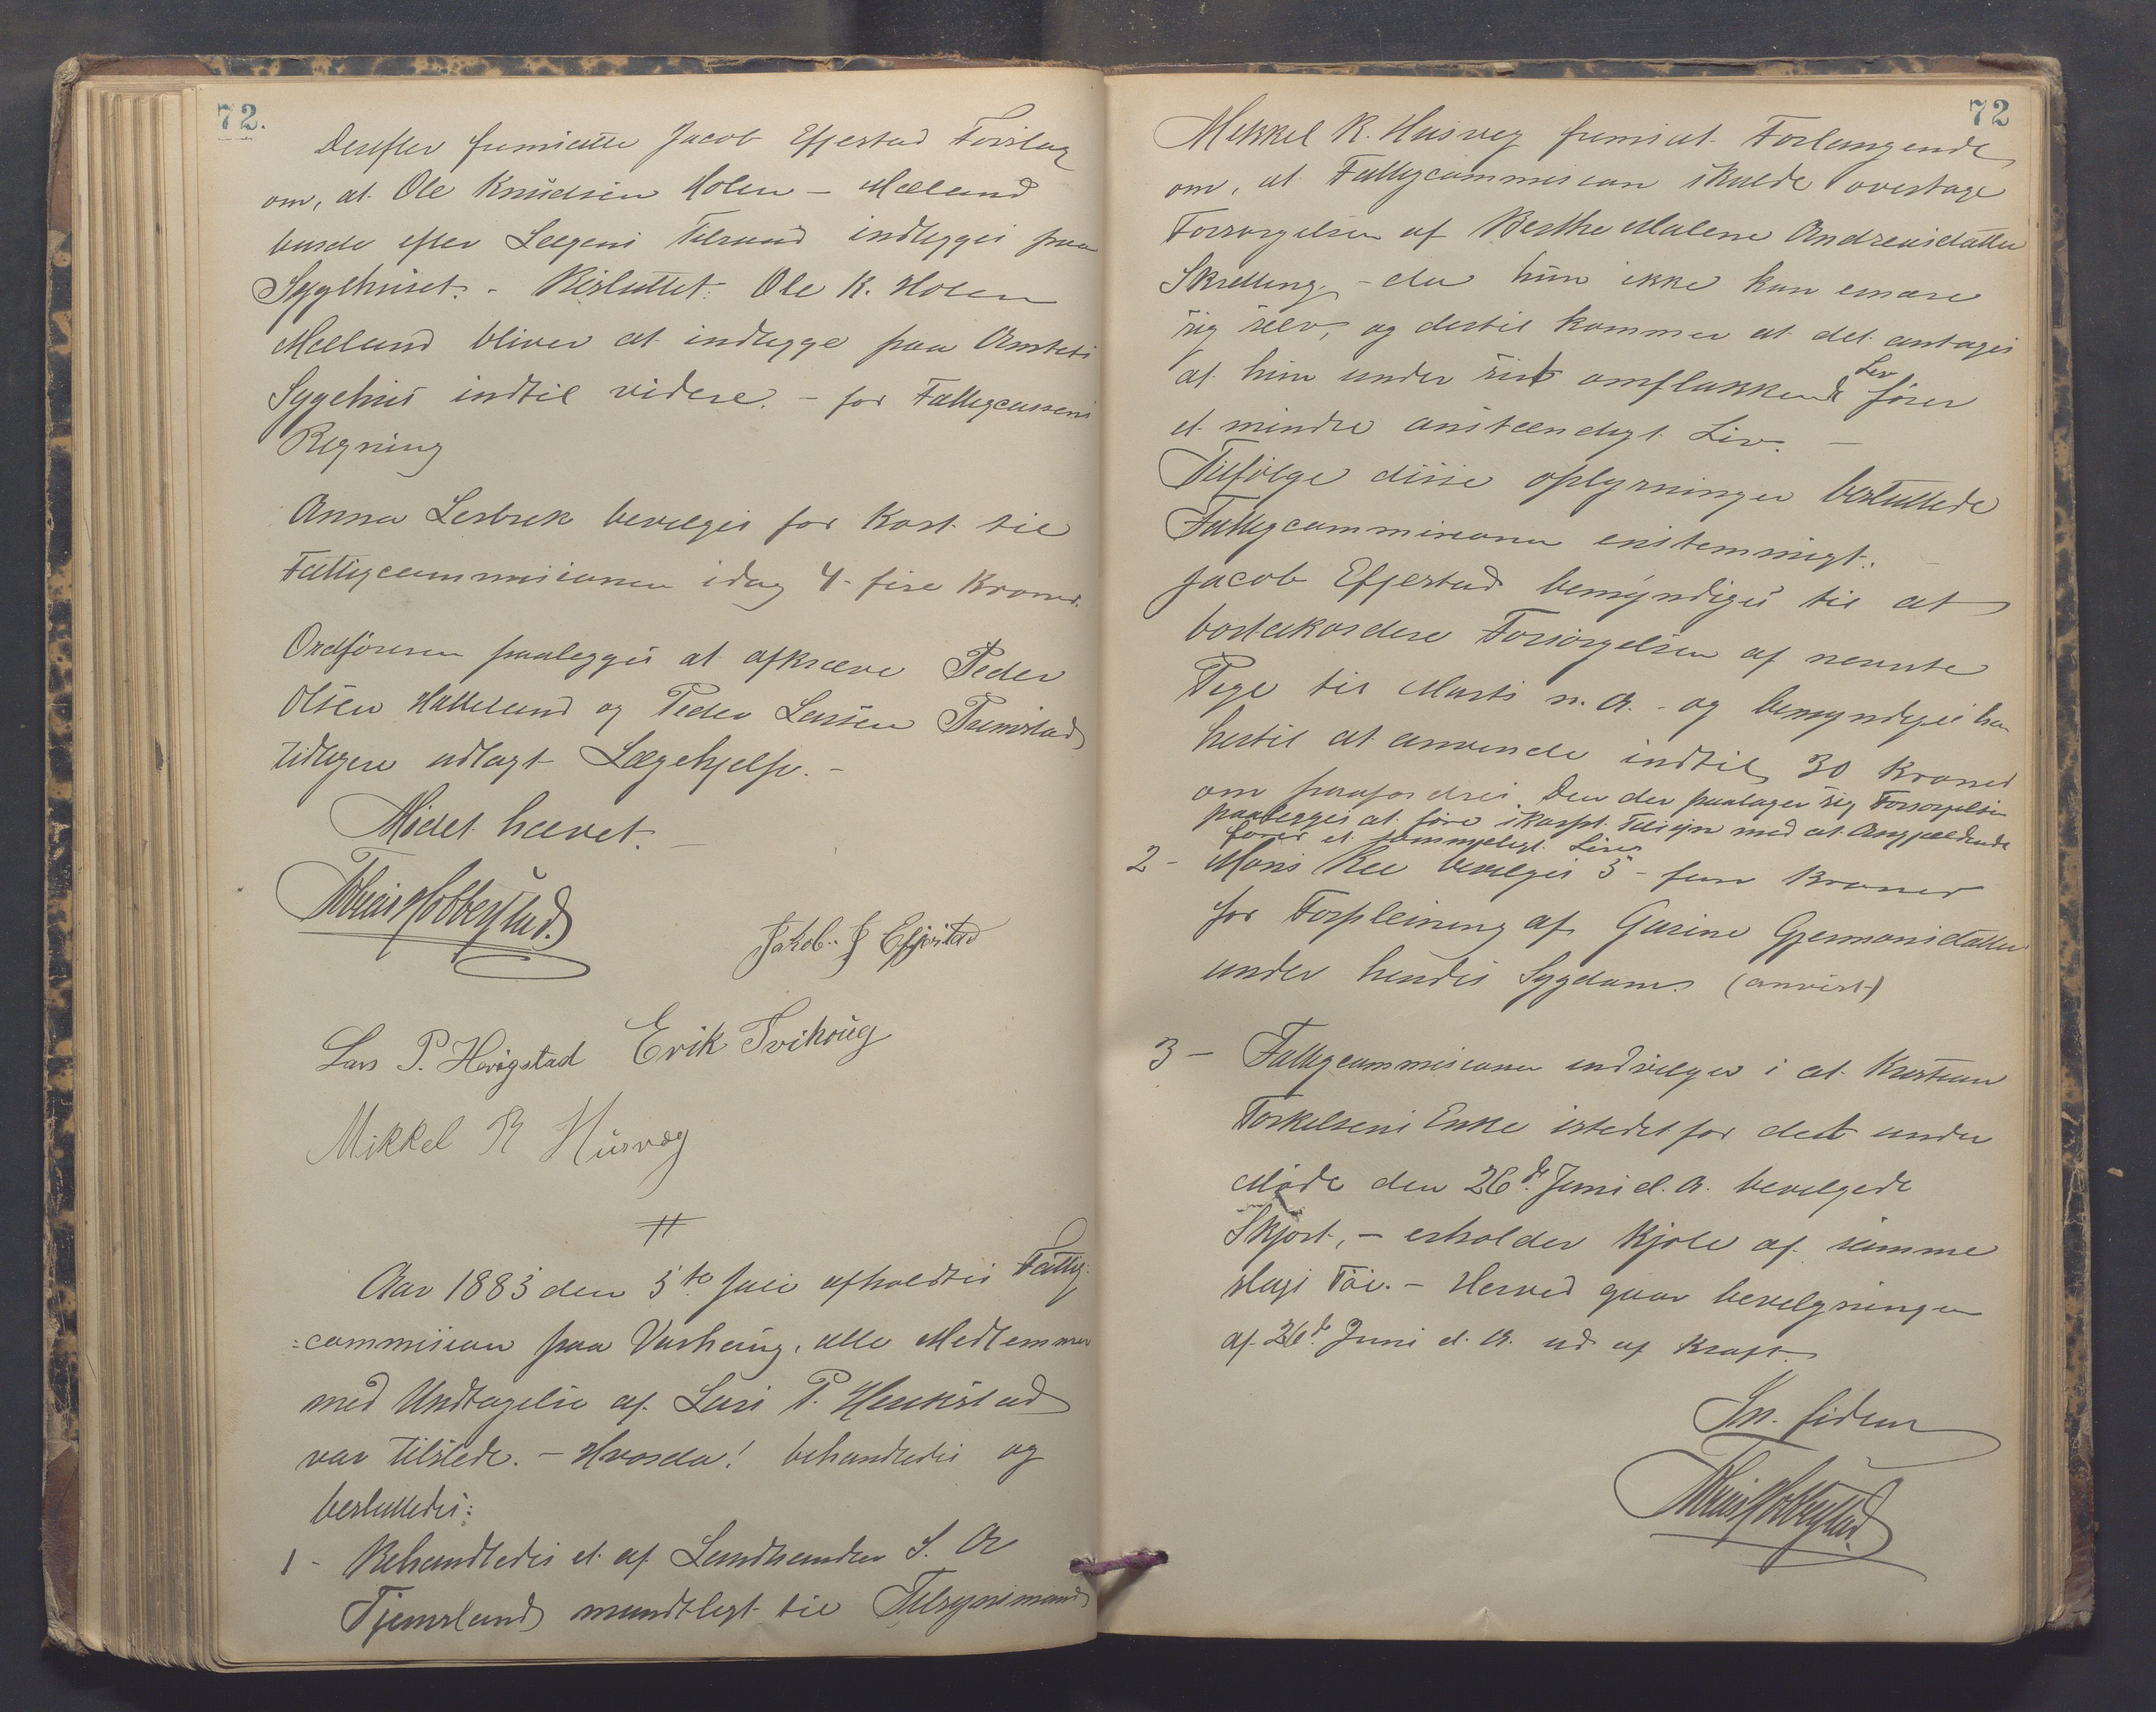 72.
Derefter fremsatte Jacob Efjestad Forslag
om, at Ole Knudsen Holen - Mæland
burde efter Lægens Tilraad indlegges paa
Sygehuset. - Besluttet: Ole K. Holen
Mæland bliver at indlegge paa Amtets
Sygehus indtil videre. - for Fattigcassens
Regning
Anna Lerbrek bevelges for Kost til
Fattigcommisionen idag 4 - fire Kroner.
Ordføreren paalegges at afkræve Peder
Olsen Halleland og Peder Larsen
tidligere udlagt Lægehjelp. -
Mødet hævet. -
Tobias Hobberstad.
Jakob. J Efjestad
Lars P. Herigstad Erik Tvihoug
Mikkel R Husvæg
#
Aar 1883 den 5te Juli afholdtes Fattig-
=commision paa Varhoug, alle Medlemmer
med Undtagelse af Lars P. Herikstad
var tilstede. - Hvorda! behandledes og
besluttedes:
1 - Behandledes et af Landhandler S. A
Tjemsland mundtligt til Tilsynsmand
72
Mekkel R. Husveg fremsat Forlangende
om, at Fattigcommision skulde overtage
Forsorgelsen af Berthe Malene Andreasdatter
Skretting - da hun ikke kan ernære
sig selv, og dertil kommer at det antages
at hun under sit omflakkende Lev fører
et mindre anstændigt Liv. -
Tilfølge disse oplysninger besluttede
Fattigcommisionen enstemmigt. -
Jacob Efjestad bemyndiges til at
bortakordere Forsorgelsen af nevnte
Pige til Marts n. A. - og bemyndiges han
hertil at anvende indtil 30 Kroner
om paafordres. Den der paatager sig Forsorgelsen
paalegges at føre skarpt Tilsyn med at Angjældende
fører et sømmeligt Liv
2 - Mons Ree bevelges 5 - fem Kroner
for Forpleining af Gurine Gjermonsdatter
under hendes Sygdom. (anvist)
3 - Fattigcommisionen indvilger i at Kristian
Torkelsens Enke istedet for det under
Møde den 26de Juni d. A. bevelgede
Skjørt, - erholder Kjole af samme
slags Tøi. - Herved gaar bevelgningen
af 26de Juni d. A. ud af Kraft.
In fidem
Tobias Hobberstad.